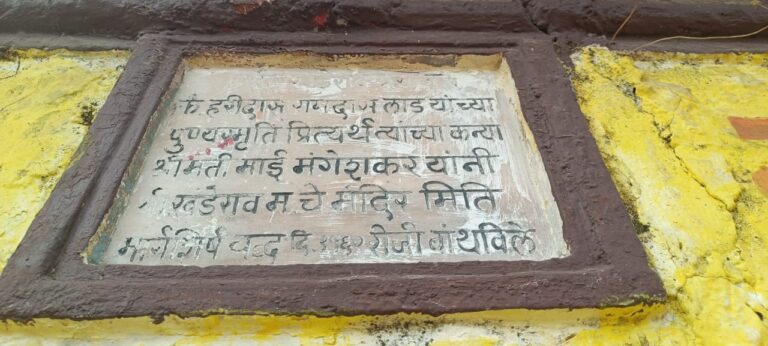 कै हरीदास रामदास लाड यांच्या
पुण्यस्मृति प्रित्यर्थ त्यांच्या कन्या
श्रीमती माई मंगेशकर यांनी
खंडेराव म चे मंदिर मिति
मार्गशिर्ष वद्द दि. रोजी बांधविले